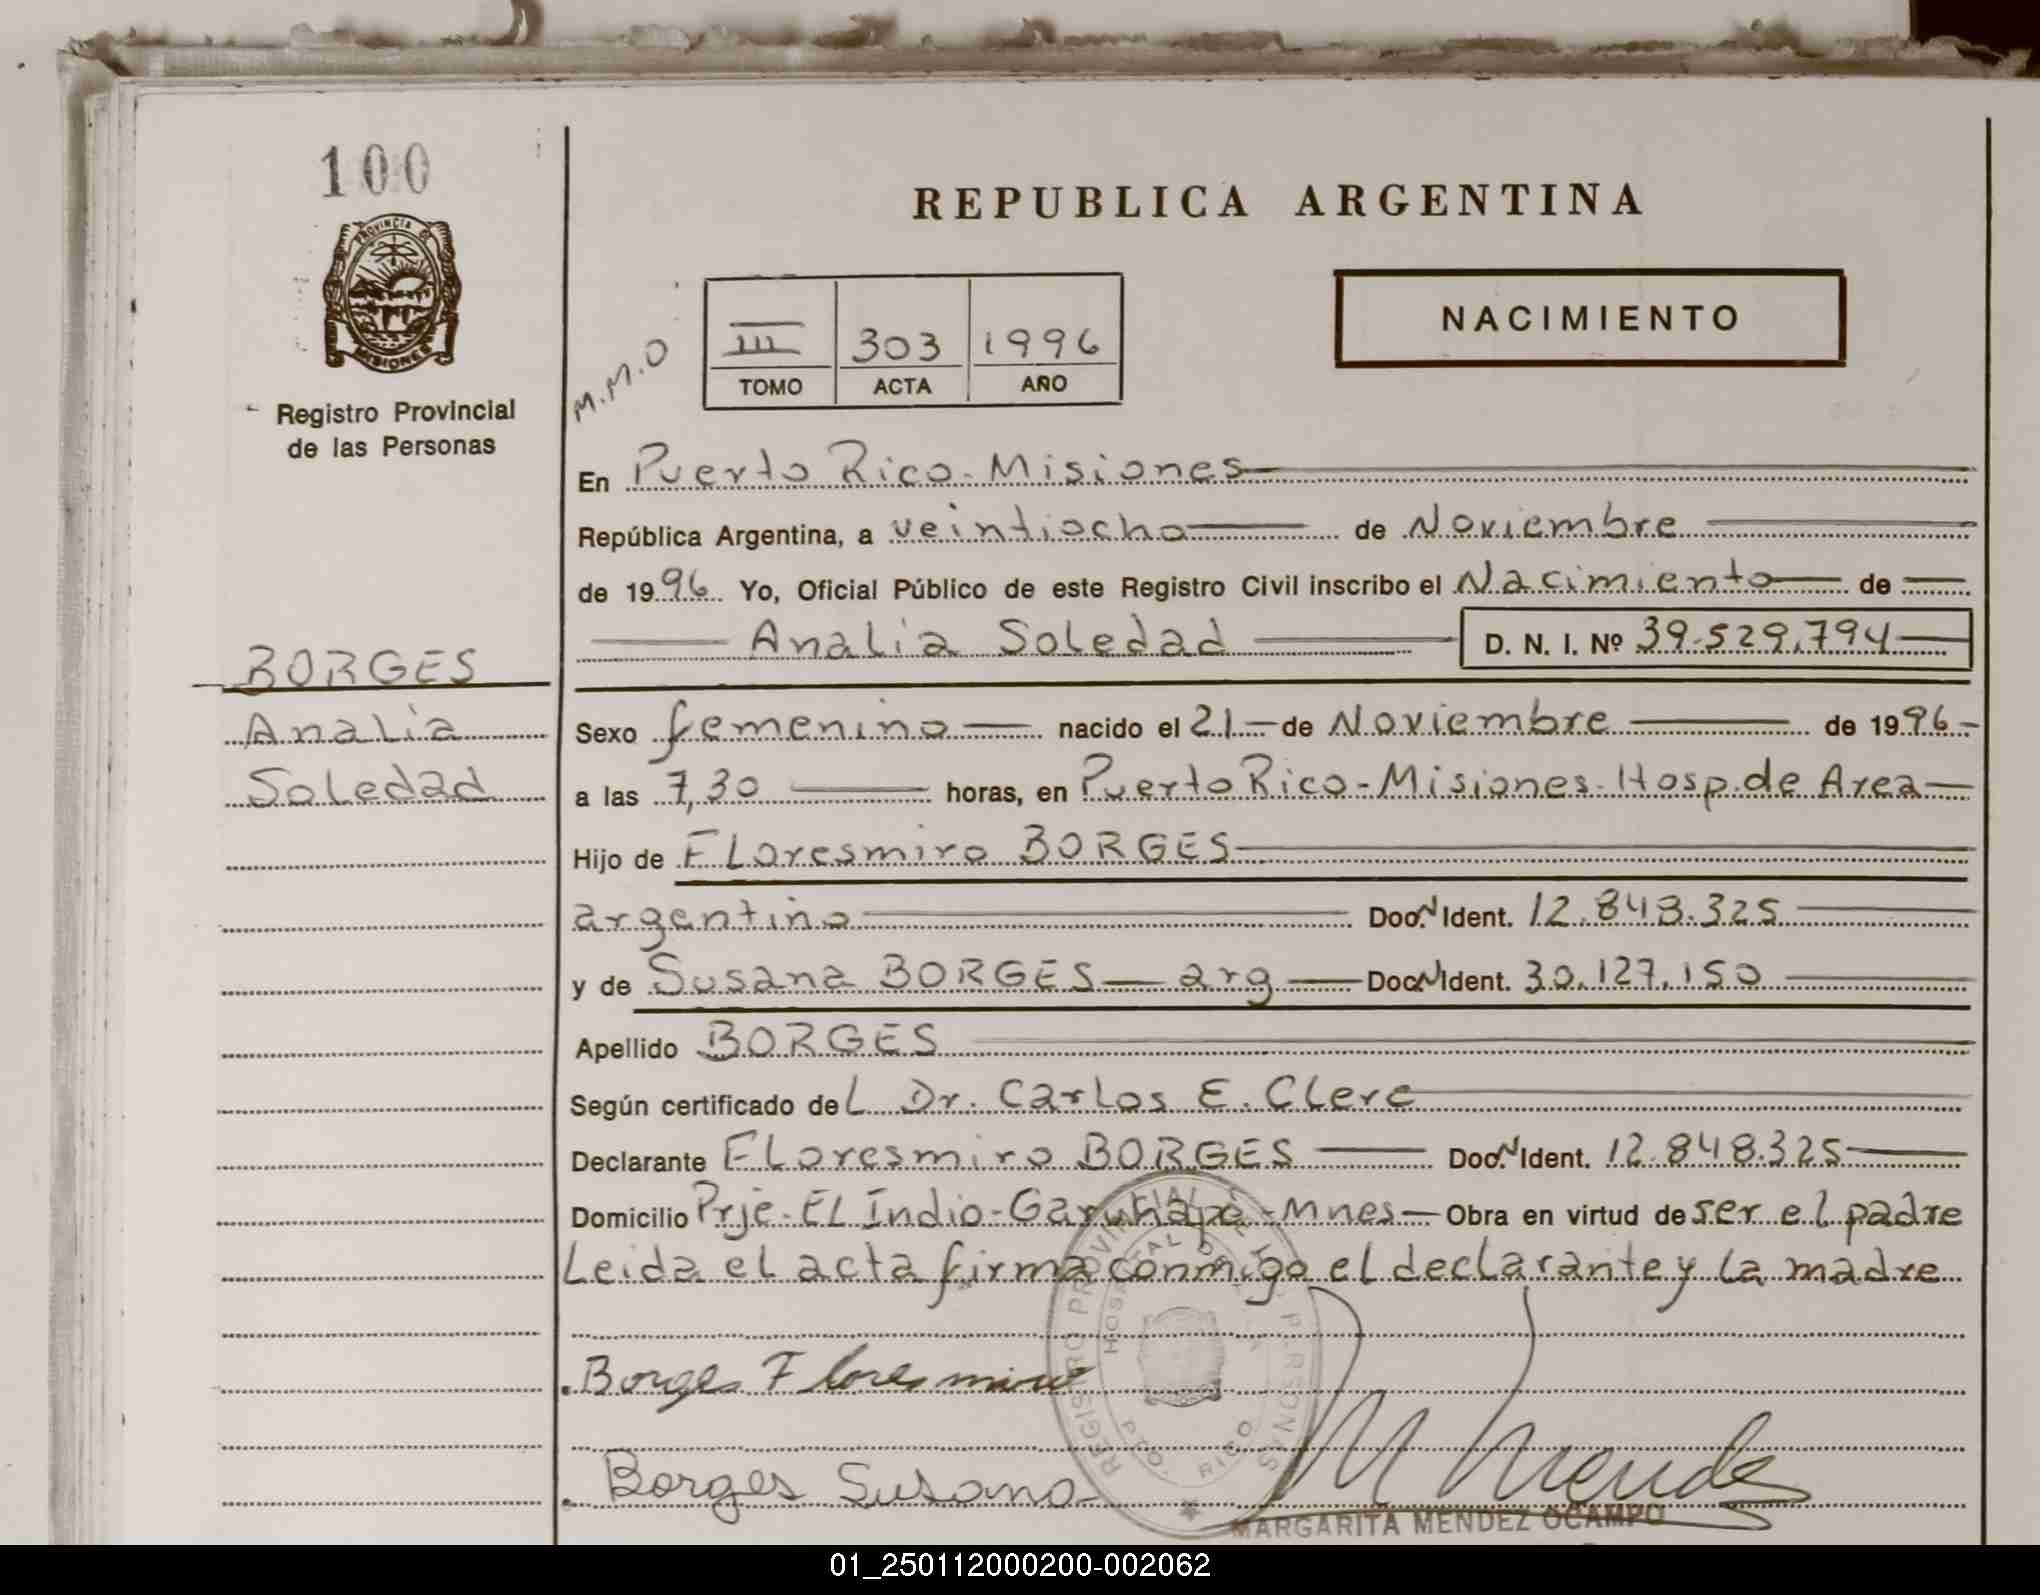 100
PROVINCIA DE
MISIONES
Registro Provincial
de las Personas
BORGES
Analia
Soledad
REPUBLICA ARGENTINA
M.M.O
III 303 1996
TOMO ACTA AÑO
NACIMIENTO
En Puerto Rico-Misiones
República Argentina, a veintiocho de Noviembre
de 1996 Yo, Oficial Público de este Registro Civil inscribo el Nacimiento de
Analia Soledad D. N. I. Nº 39.529.794
Sexo femenino nacido el 21 de Noviembre de 1996
a las 7,30 horas, en Puerto Rico-Misiones-Hosp.de Area
Hijo de Floresmiro BORGES
argentino Doc.N Ident. 12.848.325
y de Susana BORGES arg Doc.N Ident. 30.127.150
Apellido BORGES
Según certificado del Dr. Carlos E. Clerc
Declarante Floresmiro BORGES Doc.N Ident. 12.848.325
Domicilio Prje-El Indio-Garuhapé-Mnes Obra en virtud de ser el padre
Leida el acta firma conmigo el declarante y la madre
Borges Floresmiro
Borges Susana
M Mendez
REGISTRO PROVINCIAL DE LAS PERSONAS
HOSPITAL
PTO. RICO
MARGARITA MENDEZ OCAMPO
01_250112000200-002062